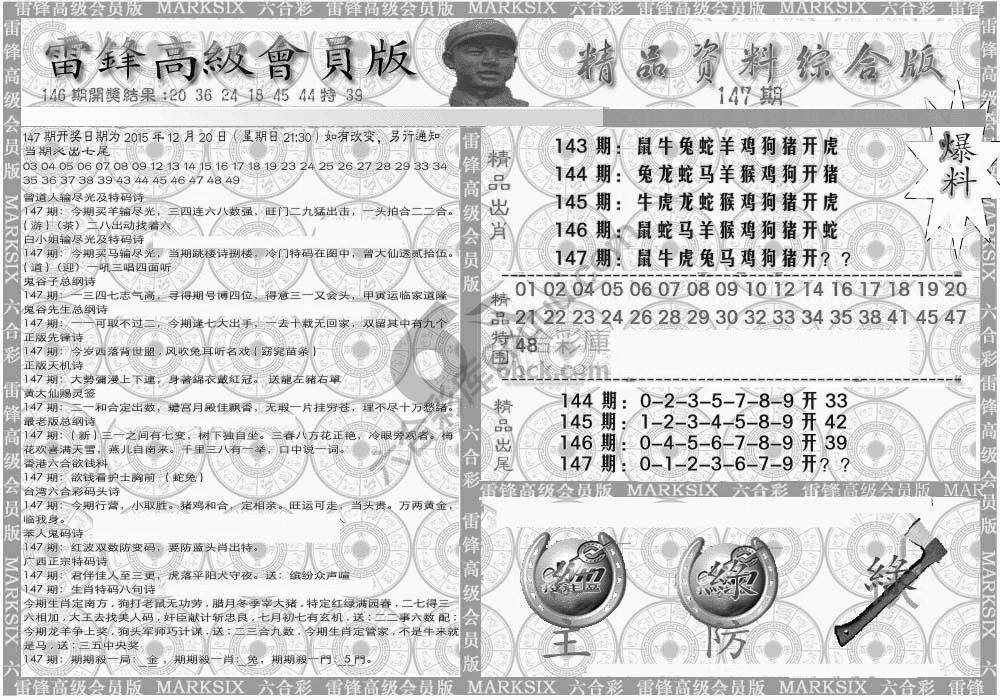 雷锋高级会员版 MARKSIX 六合彩 雷锋高级会员版 MARKSIX 六合彩 雷锋高级会员版 MARKSIX 六合彩 雷锋
雷鋒高級會員版
精品资料综合版
146期開獎結果:20 36 24 18 45 44特 39
147期
147期开奖日期为 2015年12月20日(星期日21:30)如有改变，另行通知
当期必出七尾
03 04 05 06 07 08 09 12 13 14 15 16 17 18 19 23 24 25 26 27 28 29 33 34
35 36 37 38 39 43 44 45 46 47 48 49
曾道人输尽光及特码诗
147期：今期买羊输尽光，三四连六八数强，旺门二九猛出击，一头拍合二二合。
{游}〔茶〕二八出动找着六
白小姐输尽光及特码诗
147期：今期买马输尽光，当期跳楼诗捌楼，冷门特码在图中，曾大仙透贰拾伍。
{道}〔迎〕一吼三唱四面听
鬼谷子总纲诗
147期：一三四七志气高，寻得期号博四位，得意三一又会头，甲寅运临家道隆
鬼谷先生总纲诗
147期：一一可取不过二，今期逢七大出手，一去十载无回家，双留其中有九个
正版先锋诗
147期：今岁西落背世盟．风吹兔耳听名戏｛窈窕苗条｝
正版天机诗
147期：大勢彌漫上下連，身著綿衣戴紅冠。送龍左豬右單
黄大仙赐灵签
147期：二一和合定出数，蟾宫月殿佳飘香，无瑕一片挂穷苍，理不尽十万愁绪。
最老版总纲诗
147期：{新}三一之间有七变，树下独自坐。三春八方花正艳，冷眼旁观者。梅
花欢喜满天雪，燕儿自南来。千里三八有一举，口中说一词。
香港六合欲钱料
147期：欲钱看护士胸前 ｛蛇兔｝
台湾六合彩码头诗
147期：今期行营，小取胜。豬鸡和合，定相亲。旺运可走，当头贵。万两黄金，
临我身。
苯人鬼码诗
147期：红波双数防变码，要防蓝头肖出特。
广西正宗特码诗
147期：君伴佳人至三更，虎落平阳犬守夜。送：缤纷众声喧
147期：生肖特码八句诗
今期生肖定南方．狗打老鼠无功劳．腊月冬季宰大猪．特定红绿满园春．二七得三
六相加．大王去找美人码．奸臣献计斩忠良．七月初七有玄机．送：二二事六数 配：
今期龙羊争上奖．狗头军师巧计谋．送：二三合九数．今期生肖定管家．不是牛来就
是马．送：三五中央奖
147期：期期殺一局：金，期期殺一肖：兔，期期殺一門：5門。
精品出肖
143期：鼠牛兔蛇羊鸡狗猪开虎
144期：兔龙蛇马羊猴鸡狗开猪
145期：牛虎龙蛇猴鸡狗猪开虎
146期：鼠蛇马羊猴鸡狗猪开蛇
147期：鼠牛虎兔马鸡狗猪开？？
爆料
精品特围
01 02 04 05 06 07 08 09 10 12 14 16 17 18 19 20
21 22 23 24 26 28 29 30 32 33 34 35 38 41 45 47
48
精品出尾
144期：0-2-3-5-7-8-9开33
145期：1-2-3-4-5-8-9开42
146期：0-4-5-6-7-8-9开39
147期：0-1-2-3-6-7-9开？？
雷锋高级会员版 MARKSIX 六合彩 雷锋高级会员版 MARK
綠
主
防
雷锋高级会员版 MARKSIX 六合彩 雷锋高级会员版 MARKSIX 六合彩 雷锋高级会员版 MARKSIX 六合彩 雷锋